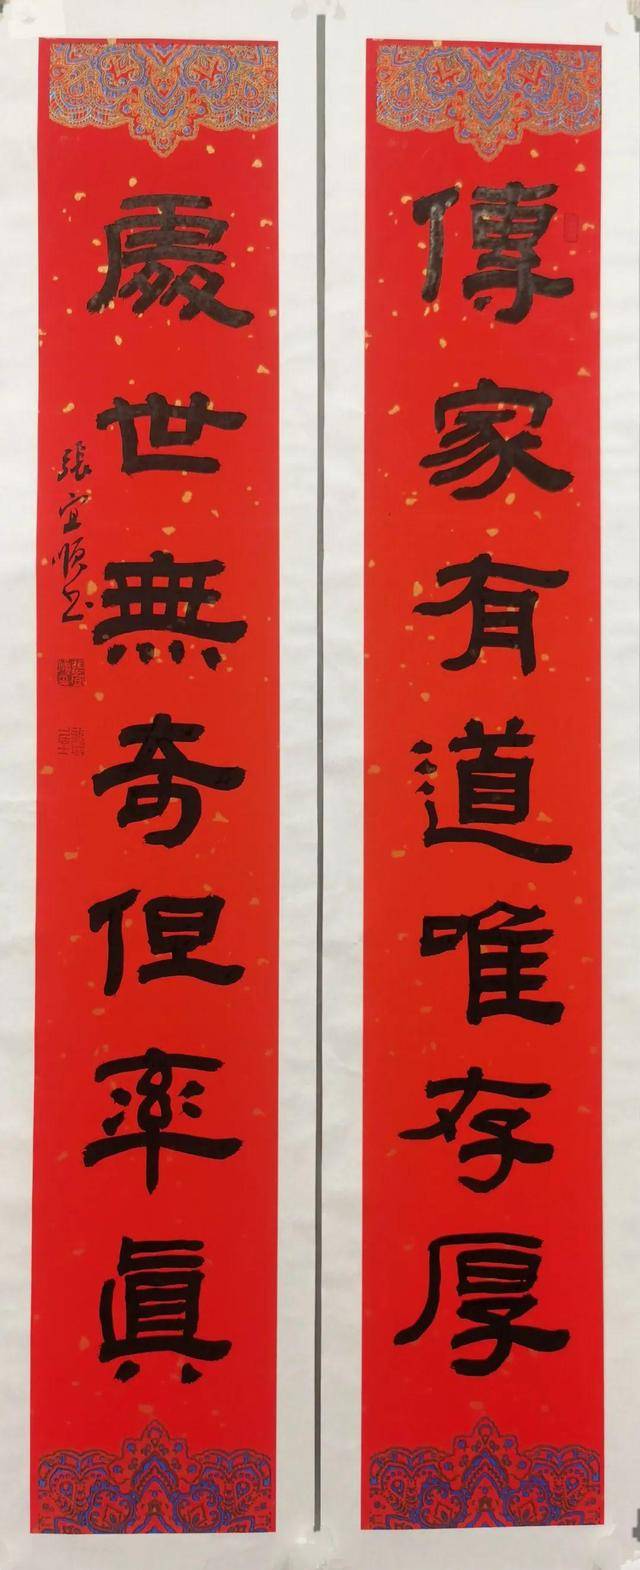 傳家有道唯存厚
處世無奇但率眞
張宜順书